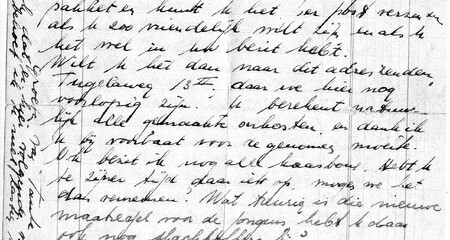 pakket en kunt U het per post verzenden
als U zoo vriendelijk wilt zijn en als U
het wel in Uw bezit hebt.
Wilt U het dan naar dit adres zenden,
Tugelaweg 13 III, daar we hier nog
voorloopig zijn. U berekent natuur-
lijk alle gemaakte onkosten, en dank ik
U bij voorbaat voor de genomen moeite.
Ook bezit ik nog alle kaasbons. Hebt U
te zijner tijd daar iets op, mogen we het
dan vernemen? Wat treurig is die nieuwe
maatregel voor de jongens, hebt U daar
ook nog
Groeten van Tante